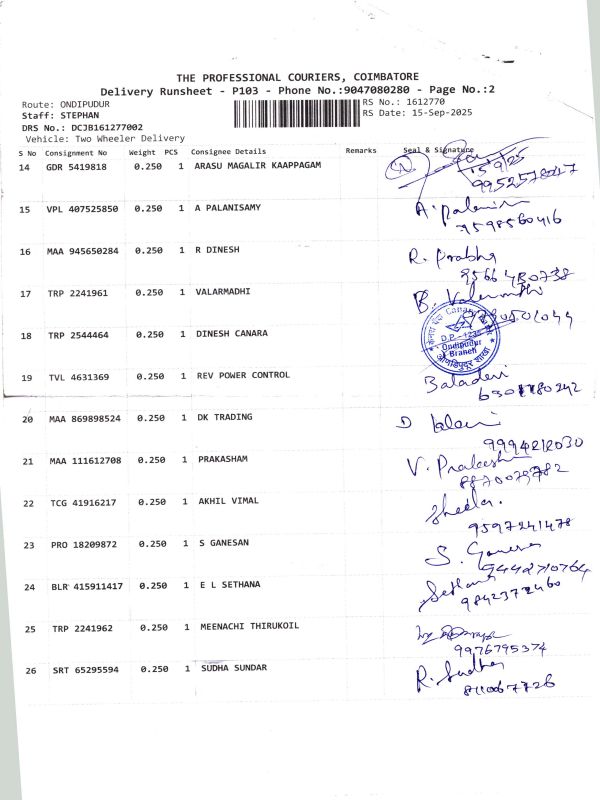 THE PROFESSIONAL COURIERS, COIMBATORE
Delivery Runsheet - P103 - Phone No.:9047080280 - Page No.:2
Route: ONDIPUDUR RS No.: 1612770
Staff: STEPHAN RS Date: 15-Sep-2025
DRS No.: DCJB161277002
Vehicle: Two Wheeler Delivery
S No Consignment No Weight PCS Consignee Details Remarks Seal & Signature
14 GDR 5419818 0.250 1 ARASU MAGALIR KAAPPAGAM
15/9/25
15 VPL 407525850 0.250 1 A PALANISAMY A. palanisa
7598560416
16 MAA 945650284 0.250 1 R DINESH R. Prabha
9566480738
17 TRP 2241961 0.250 1 VALARMADHI
18 TRP 2544464 0.250 1 DINESH CANARA
Ondipudur
Branch
19 TVL 4631369 0.250 1 REV POWER CONTROL Baladevi
20 MAA 869898524 0.250 1 DK TRADING D
9994212030
21 MAA 111612708 0.250 1 PRAKASHAM V. Prakash
8870079782
22 TCG 41916217 0.250 1 AKHIL VIMAL Sheela.
9597241478
23 PRO 18209872 0.250 1 S GANESAN S. Ganesa
9442710764
24 BLR 415911417 0.250 1 E L SETHANA Sethana
9842372460
25 TRP 2241962 0.250 1 MEENACHI THIRUKOIL
9976795374
26 SRT 65295594 0.250 1 SUDHA SUNDAR R. Sudha